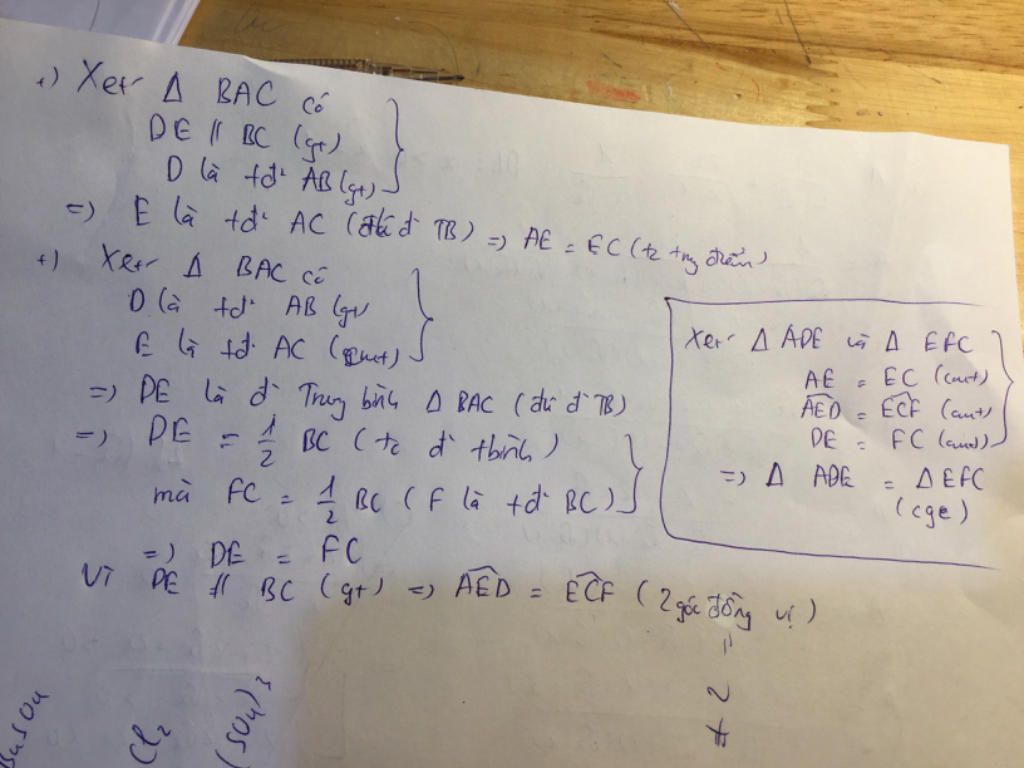 +) Xét Δ BAC có
DE // BC (gt)
D là tđ' AB (gt)
=) E là tđ' AC (đlí đ' TB) =) AE = EC (tc trg điểm)
+) Xét Δ BAC có
D là tđ' AB (gt)
E là tđ' AC (cmt)
=) DE là đ' Trung bình Δ BAC (đlí đ' TB)
=) DE = 1/2 BC (tc đ' tbình)
mà FC = 1/2 BC (F là tđ' BC)
=) DE = FC
Vì DE // BC (gt) =) \widehat{AED} = \widehat{ECF} (2 góc đồng vị)
Xét Δ ADE và Δ EFC
AE = EC (cmt)
\widehat{AED} = \widehat{ECF} (cmt)
DE = FC (cmt)
=) Δ ADE = Δ EFC
(cgc)
BaSO4
Cl2
(SO4)3